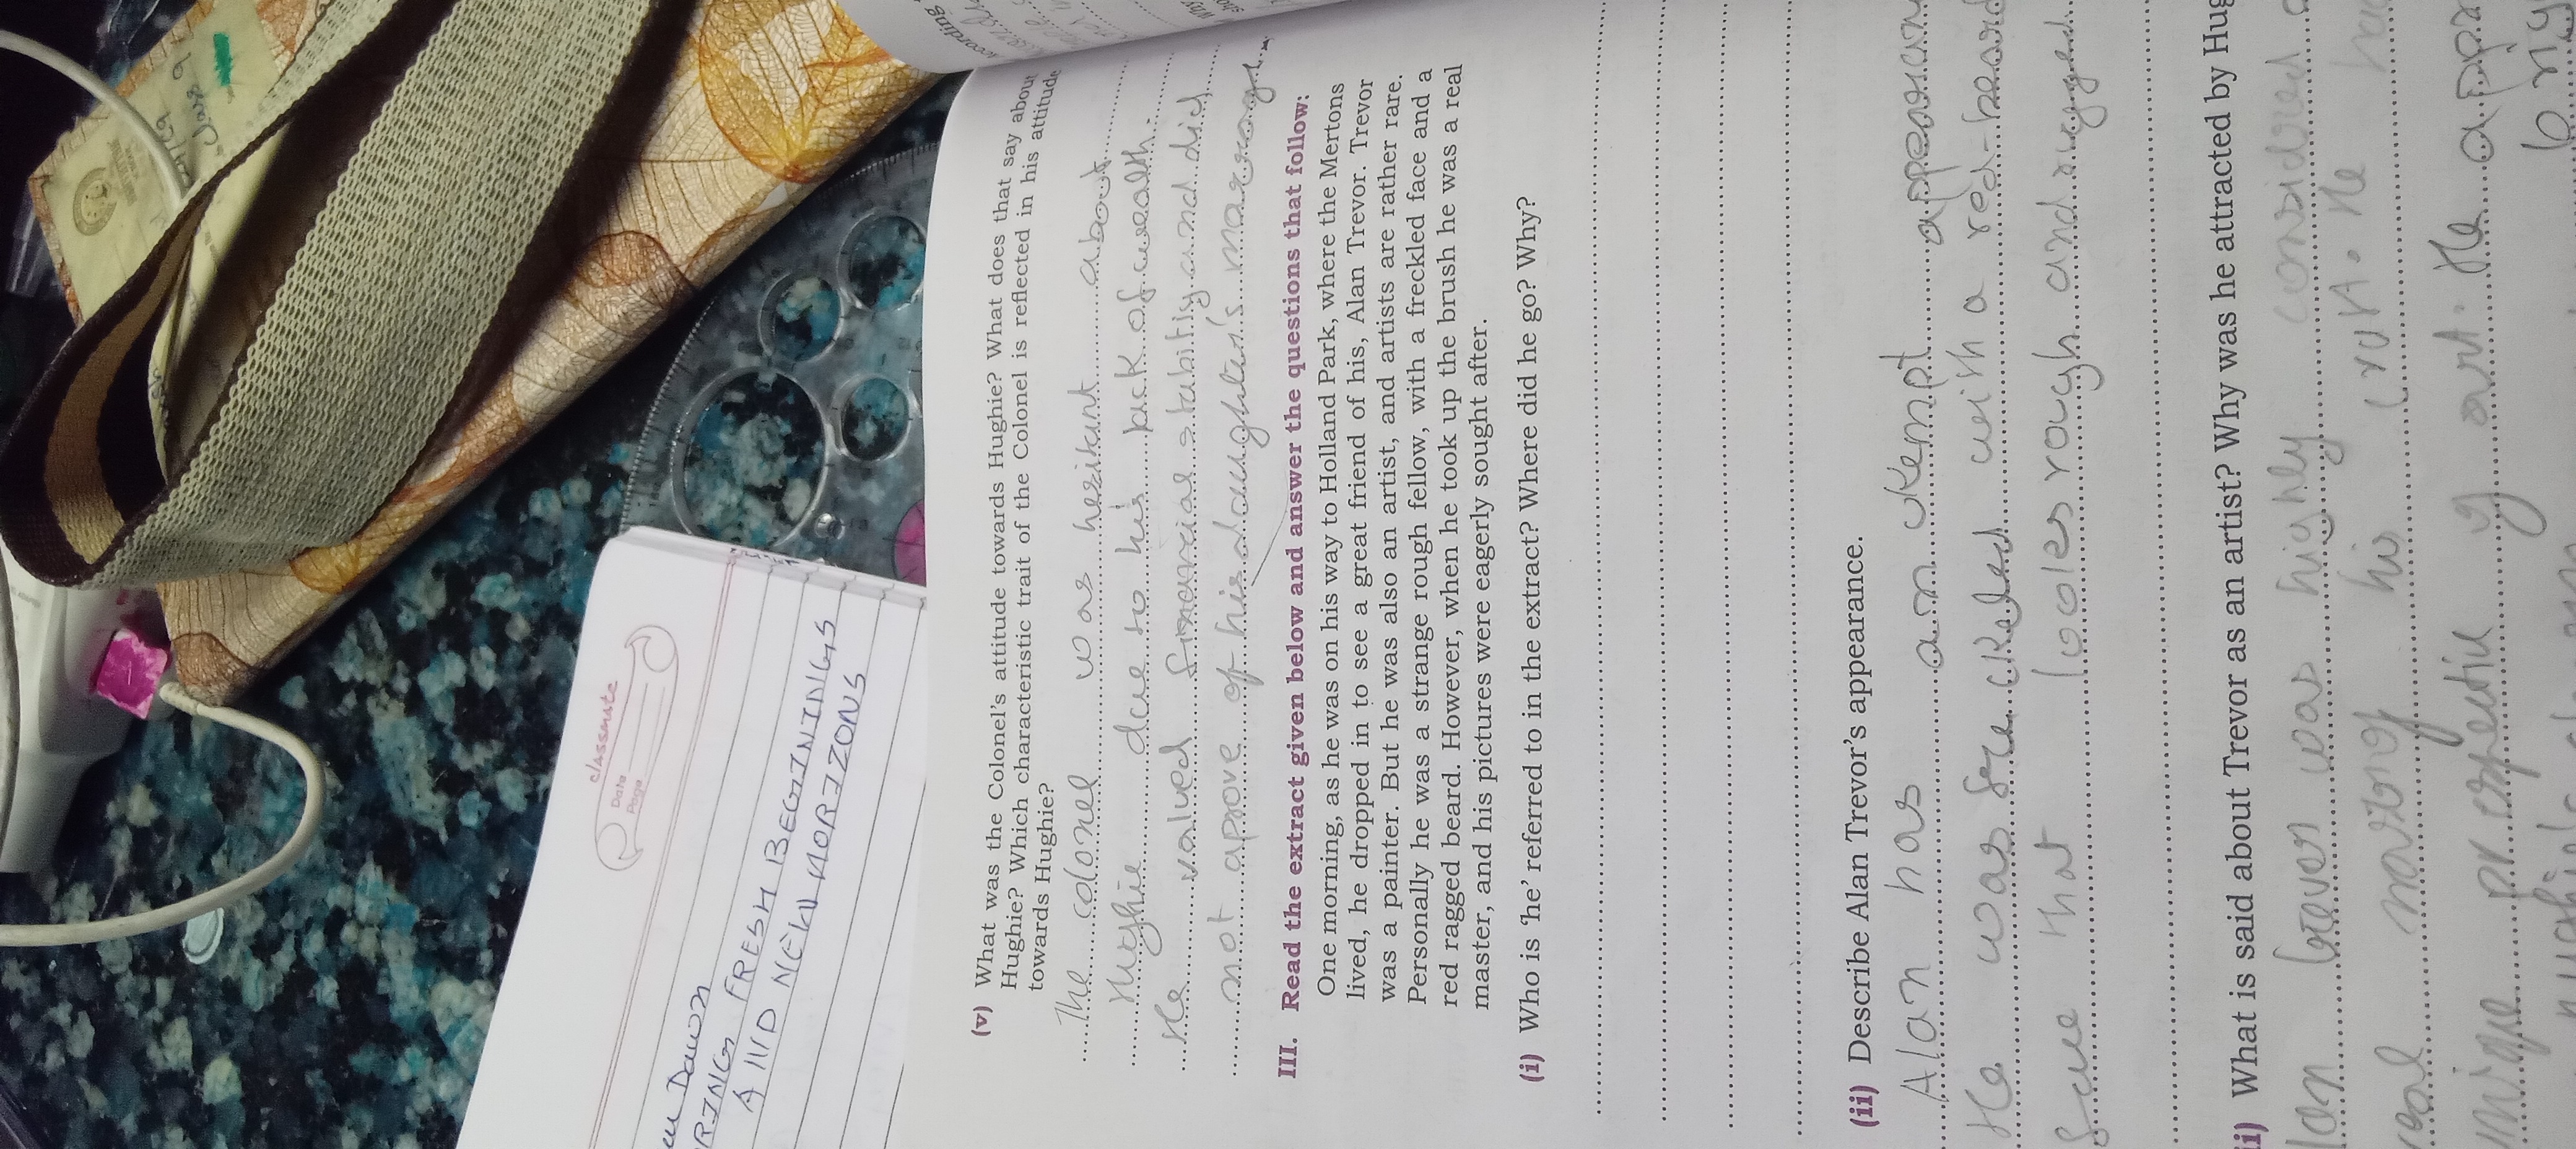 Class 9
classmate
Date
Page
Dawn
RING FRESH BEGININGS
AND NEW HORIZONS
(v) What was the Colonel's attitude towards Hughie? What does that say about
Hughie? Which characteristic trait of the Colonel is reflected in his attitude
towards Hughie?
The colonel was hesitant about
Hughie due to his lack of wealth.
He valued financial stabitiy and did
not aprove of his daughter's
III. Read the extract given below and answer the questions that follow:
One morning, as he was on his way to Holland Park, where the Mertons
lived, he dropped in to see a great friend of his, Alan Trevor. Trevor
was a painter. But he was also an artist, and artists are rather rare.
Personally he was a strange rough fellow, with a freckled face and a
red ragged beard. However, when he took up the brush he was a real
master, and his pictures were eagerly sought after.
(i) Who is 'he' referred to in the extract? Where did he go? Why?
(ii) Describe Alan Trevor's appearance.
Alan has an ukempt appearan
He was freckeled with a red-beard
face that looks rough and rugged
ii) What is said about Trevor as an artist? Why was he attracted by Hug
lan was highly considred
real his craft. He ha
of art. He appr
According
Why
sho